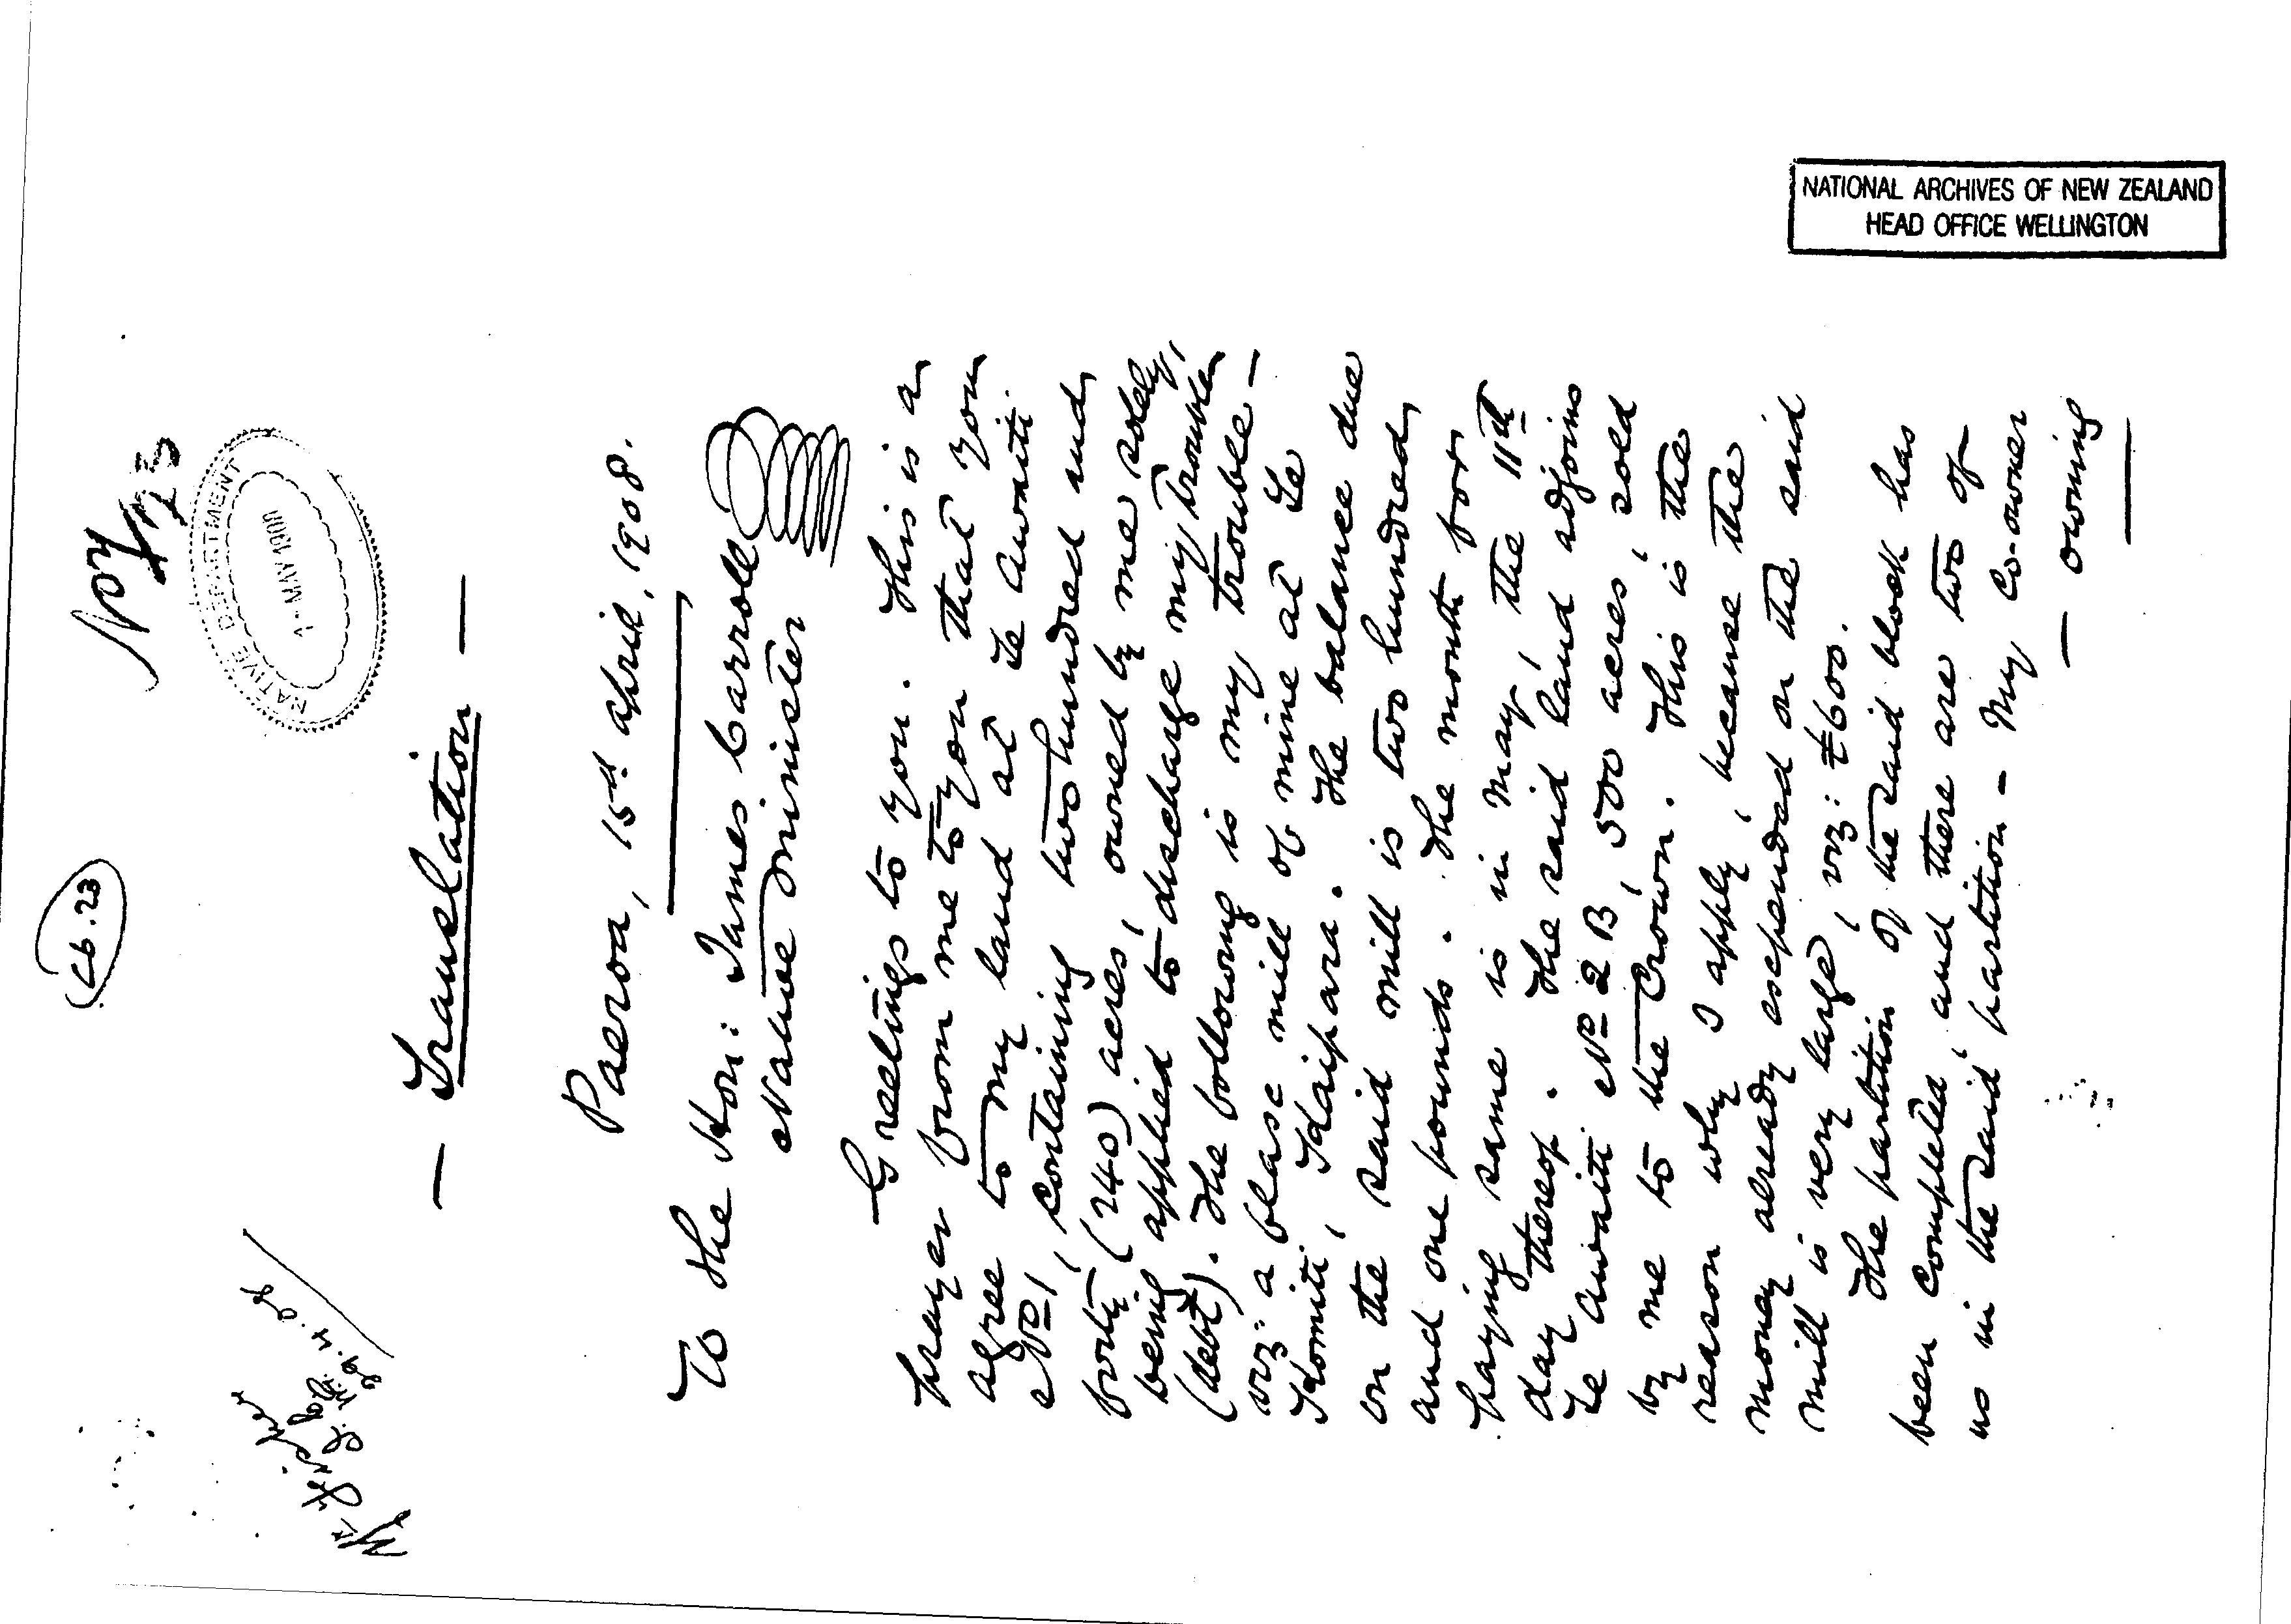 NATIONAL ARCHIVES OF NEW ZEALAND
HEAD OFFICE WELLINGTON
C6.23
NATIVE DEPARTMENT
1 - MAY 1908
— Translation —
Paeroa, 15th April, 1908.
To the Hon: James Carroll
Native Minister
Greetings to you. This is a
prayer from me to you that you
agree to my land at Te Awaiti
No 1, containing two hundred and
forty (240) acres, owned by me solely,
being applied to discharge my trouble
(debt). The following is my trouble -
viz: a flase mill of mine at Te
Komiti, Kaipara. The balance due
on the said mill is two hundred
and one pounds. The month for
paying same is in May, the 11th
day thereof. The said land adjoins
Te Awaiti No 2 B, 500 acres, sold
by me to the Crown. This is the
reason why I apply, because the
money already expended on the said
mill is very large, viz: £600.
The partition of the said block has
been completed, and there are two of
us in the said partition - My co-owner
— owning